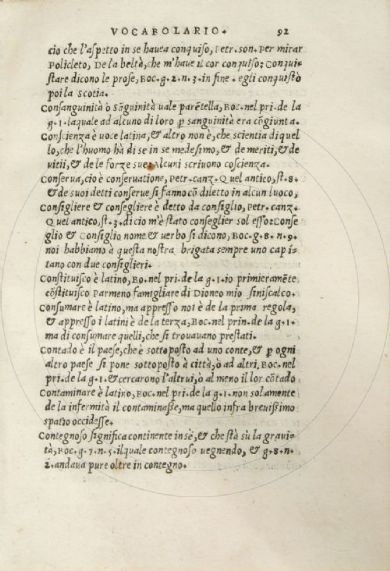 VOCABOLARIO. 92
cio che l'aspetto in se haueа conquiso, Petr. son. Per mirar
Policleto, De la beltà, che m'haue il cor conquiso: Conqui=
stare dicono le prose, Boc. g. 2. n. 3. in fine. egli conquistò
poi la scotia.
Consanguinità ò sāguinità uale parētella, Boc. nel pri. de la
g. 1. laquale ad alcuno di loro p sanguinità era cōgiunta.
Conscienza è uoce latina, & altro non è, che scientia di quel
lo, che l'huomo hà di se in se medesimo, & de meriti, & de
uitii, & de le forze sue. Alcuni scriuono coscienza.
Conserua, cio è conseruatione, Petr. canz. Quel antico, st. 8.
& de suoi detti conserue si fanno cō diletto in alcun luoco,
Consigliere & consegliere è detto da consiglio, Petr. canz.
Quel antico, st. 3. di cio m'è stato conseglier sol esso: Conse
glio & Consiglio nome & uerbo si dicono, Boc. g. 8. n. 9.
noi habbiamo à questa nostra brigata sempre uno capi=
tano con due consiglieri.
Constituisco è latino, Bo. nel pri. de la g. 1. io primieramēte
cōstituisco Parmeno famigliare di Dioneo mio siniscalco.
Consumare è latino, ma appresso noi è de la prima regola,
& appresso i latini è de la terza, Boc. nel prin. de la g. 1.
ma di consumare quelli, che si trouauano prestati.
Contado è il paese, che è sottoposto ad uno conte, & p ogni
altro paese si pone sottoposto à città, ò ad altri, Boc. nel
pri. de la g. 1. & cercarono l'altrui, ò al meno il lor cōtado
Contaminare è latino, Boc. nel pri. de la g. 1. non solamente
de la infermità il contaminasse, ma quello infra breuissimo
spatio occidesse.
Contegnoso significa continente in sè, & che stà sù la graui=
tà, Boc. g. 7. n. 5. il quale contegnoso uegnendo, & g. 8. n.
2. andaua pure oltre in contegno.